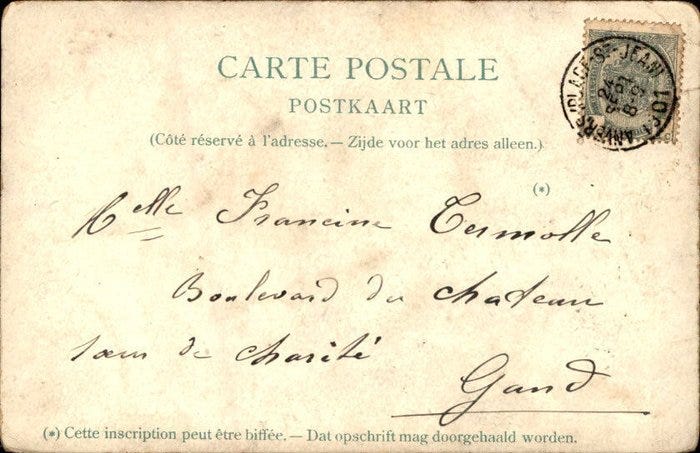 CARTE POSTALE
POSTKAART
(Côté réservé à l'adresse. — Zijde voor het adres alleen.)
(*)
Melle Francine Termolle
Boulevard du chateau
sœur de charité
Gand
(*) Cette inscription peut être biffée. — Dat opschrift mag doorgehaald worden.
ANVERS (PLACE-ST-JEAN)